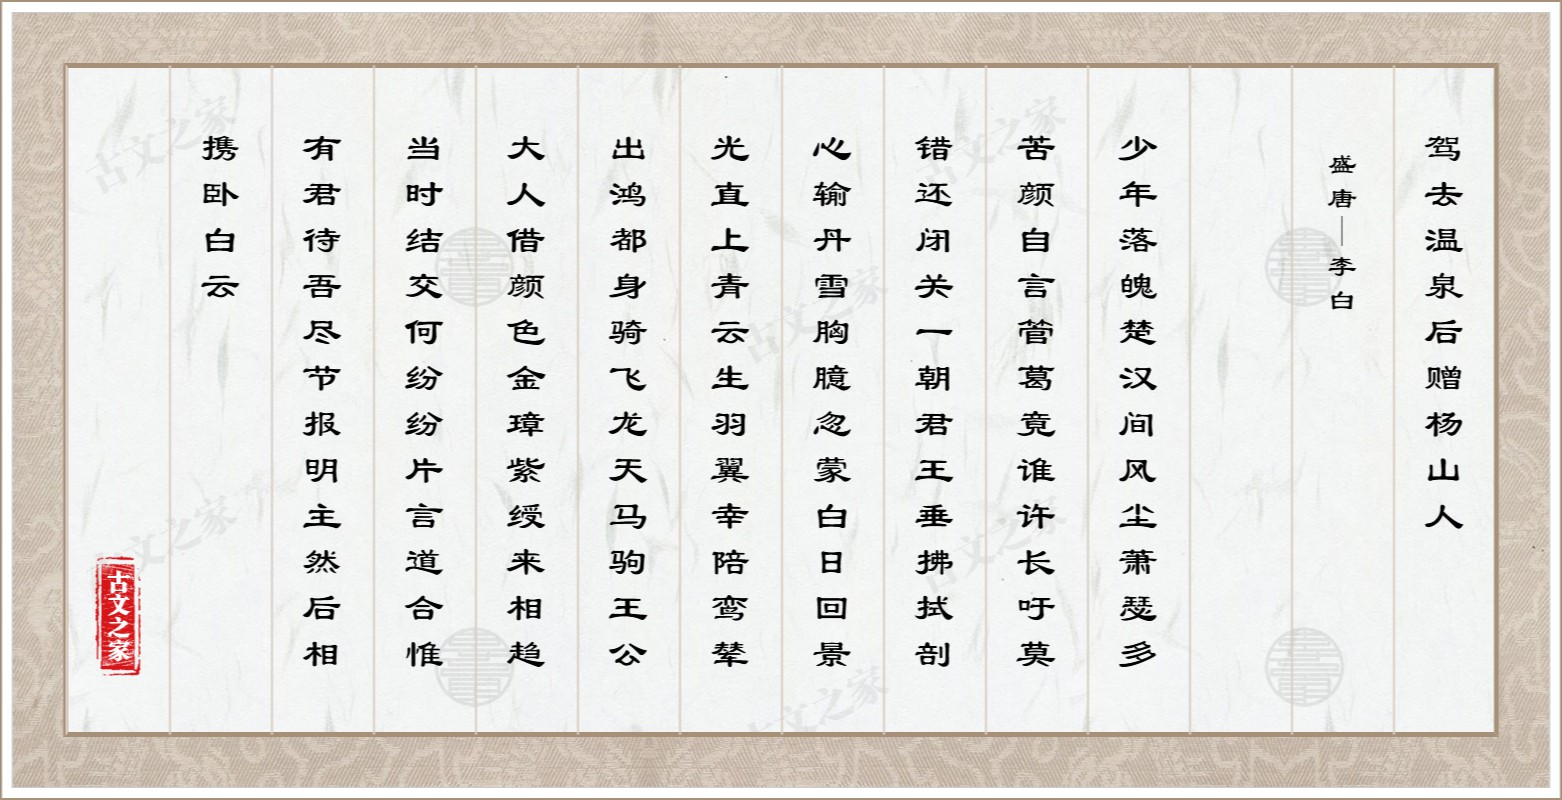 驾去温泉后赠杨山人
盛唐—李白
少年落魄楚汉间风尘萧瑟多
苦颜自言管葛竟谁许长吁莫
错还闭关一朝君王垂拂拭剖
心输丹雪胸臆忽蒙白日回景
光直上青云生羽翼幸陪鸾辇
出鸿都身骑飞龙天马驹王公
大人借颜色金璋紫绶来相趋
当时结交何纷纷片言道合惟
有君待吾尽节报明主然后相
携卧白云
古文之家
古文之家
古文之家
古文之家
古文之家
古文之家
古文之家